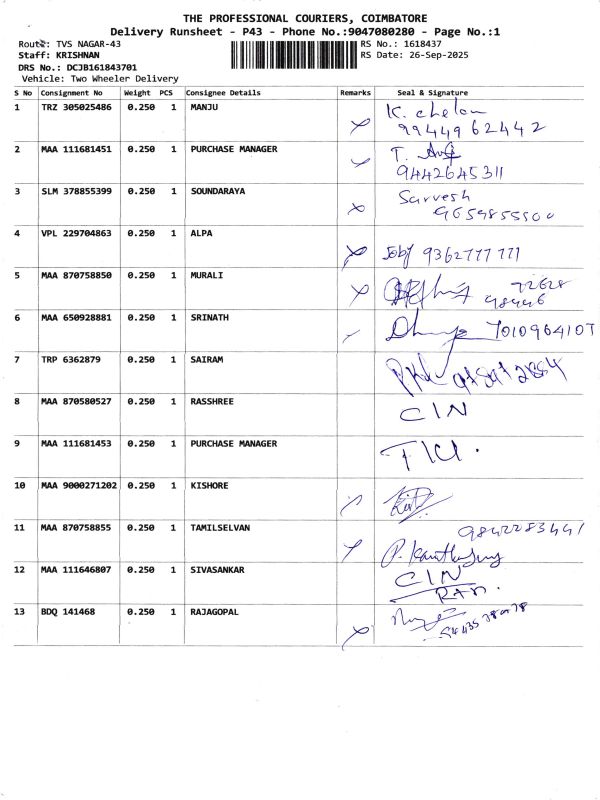 THE PROFESSIONAL COURIERS, COIMBATORE
Delivery Runsheet - P43 - Phone No.:9047080280 - Page No.:1
Route: TVS NAGAR-43 RS No.: 1618437
Staff: KRISHNAN RS Date: 26-Sep-2025
DRS No.: DCJB161843701
Vehicle: Two Wheeler Delivery
S No Consignment No Weight PCS Consignee Details Remarks Seal & Signature
1 TRZ 305025486 0.250 1 MANJU K. chelan
9944962442
2 MAA 111681451 0.250 1 PURCHASE MANAGER T.
9442645311
3 SLM 378855399 0.250 1 SOUNDARAYA Sarvesh
9659855500
4 VPL 229704863 0.250 1 ALPA Joby 9362777771
5 MAA 870758850 0.250 1 MURALI 72628
98446
6 MAA 650928881 0.250 1 SRINATH 7010964107
7 TRP 6362879 0.250 1 SAIRAM
8 MAA 870580527 0.250 1 RASSHREE CIN
9 MAA 111681453 0.250 1 PURCHASE MANAGER
10 MAA 9000271202 0.250 1 KISHORE
11 MAA 870758855 0.250 1 TAMILSELVAN 9842283441
12 MAA 111646807 0.250 1 SIVASANKAR CIN
13 BDQ 141468 0.250 1 RAJAGOPAL